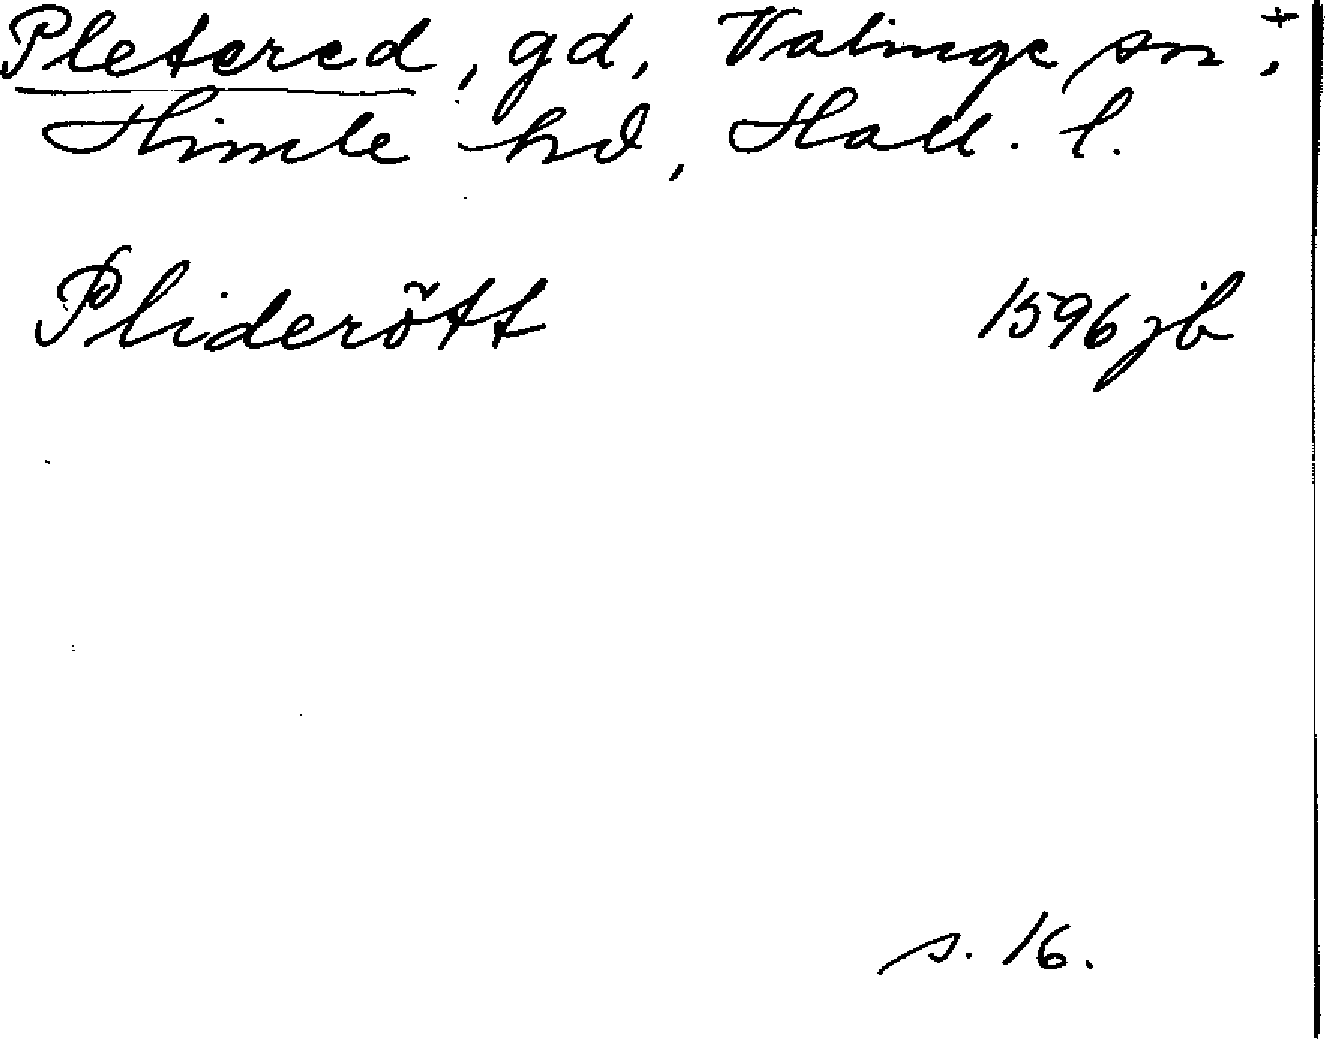 Pletered, gd, Valinge sn, +
Himle hd, Hall. l.
Pliderött 1596 jb
s. 16.